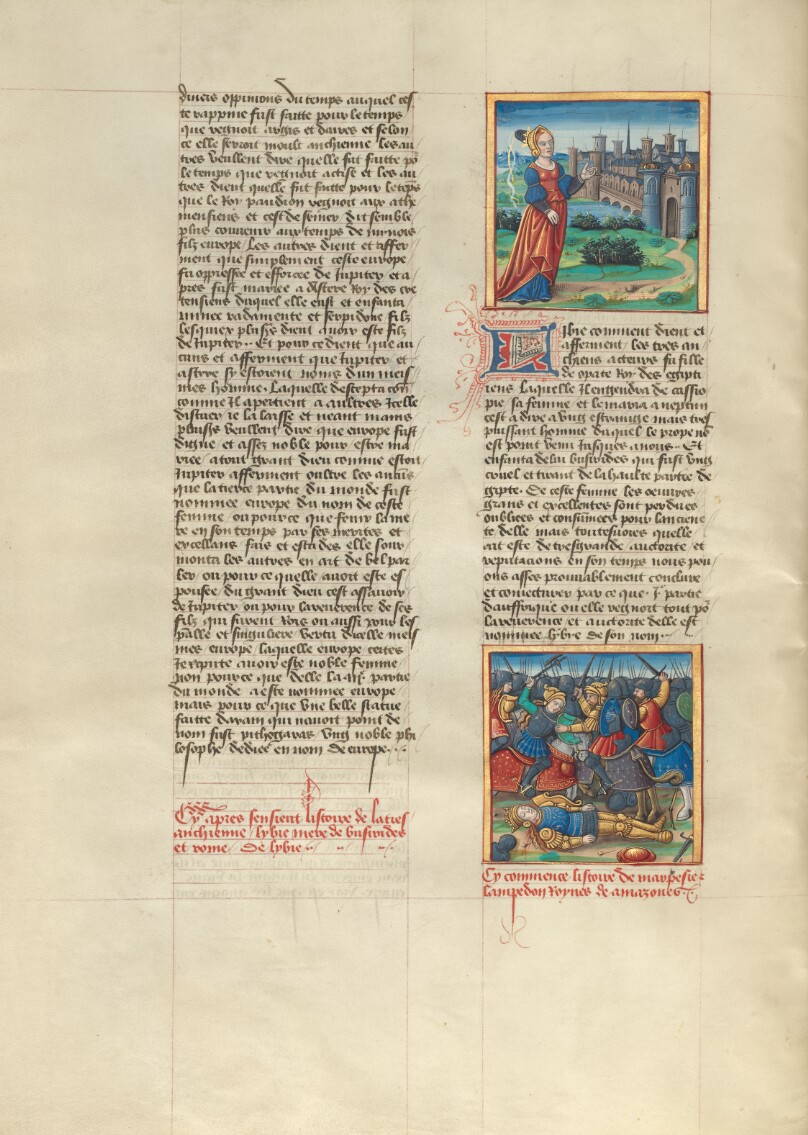 divers oppinions du temps auquel ces
te rappine fust faitte pour le temps
que regnoit argis et daires et selon
ce elle seroit moult anchienne les au
tres veullent dire quelle fut faitte po
le temps que regnoit actise et les au
tres dient quelle fut faitte pour le teps
que le Roy pandion regnoit aux athe
niensiens et cest de semer dit semble
plus convenir aux temps de mynois
filz europe. Les autres dient et affer
ment que simplement ceste europe
fu oppressee et efforcee de Jupiter et a
pres fust mariee a Astere Roy des cre
tensiens duquel elle eust et enfanta
minee radamente et serpidone filz
lesquiex plusrs dient avoir este filz
de Jupiter. Et pour ce dient que au
cuns et afferment que Jupiter et
astere sy estoient noms dun meis
mes homme. Laquelle
comme Il apertient a aultres Icelle
discuter je la laisse et neant mains
plusrs veullent dire que europe fust
digne et assez noble pour estre ma
riee a tout grant dieu comme estoit
Jupiter afferment oultre les aucuns
que la tierce partie du monde fust
nommee europe du nom de ceste
femme ou pour ce que
en son temps par ses merites et
excellans fais et estudes elle sour
monta les autres en art de bel par
ler, ou pour ce quelle avoit este es
pousee du grant dieu cest assavoir
de Jupiter ou pour la reverence de ses
filz qui furent Rois ou aussi pour les
palle et singuliere vertu dicelle meis
mes europe laquelle europe certes
Je repute avoir este noble femme
non pour ce que delle la iije partie
du monde a este nommee europe
mais pour ce que une belle statue
faitte darain qui navoit point de
nom fust pithogaras ung noble phi
losophe dediee en nom de europe.
Cy apres sensieut listoire de la tres
anchienne lybie mere de busirides
et royne de lybie
Ibie comment dient et
afferment les tres an
chiens acteurs fu fille
de opate Roy des egipti
iens laquelle Il engendra de cassio
pie sa femme et le maria a neptun
cest a dire a ung estrainge mais tres
puissant homme duquel le propre no
est point venu Jusques a nous. Et
enfanta de lui busirides qui fust ung
cruel et tirant de la haulte partie de
gipte. De ceste femme les oeuvres
grans et excellentes sont perdues
oubliees et consumees pour lanciene
te delle mais touteffoies quelle
ait este de tresgrande auctorite et
reputacions en son temps nous pou
ons asses prouvablement conclure
et conjecturer par ce que partie
dauffrique ou elle regnoit tout po
la reverence et auctorite delle est
nommee lybie de son nom
Cy commence listoire de marpesie et
lampedon Roynes de amazones.